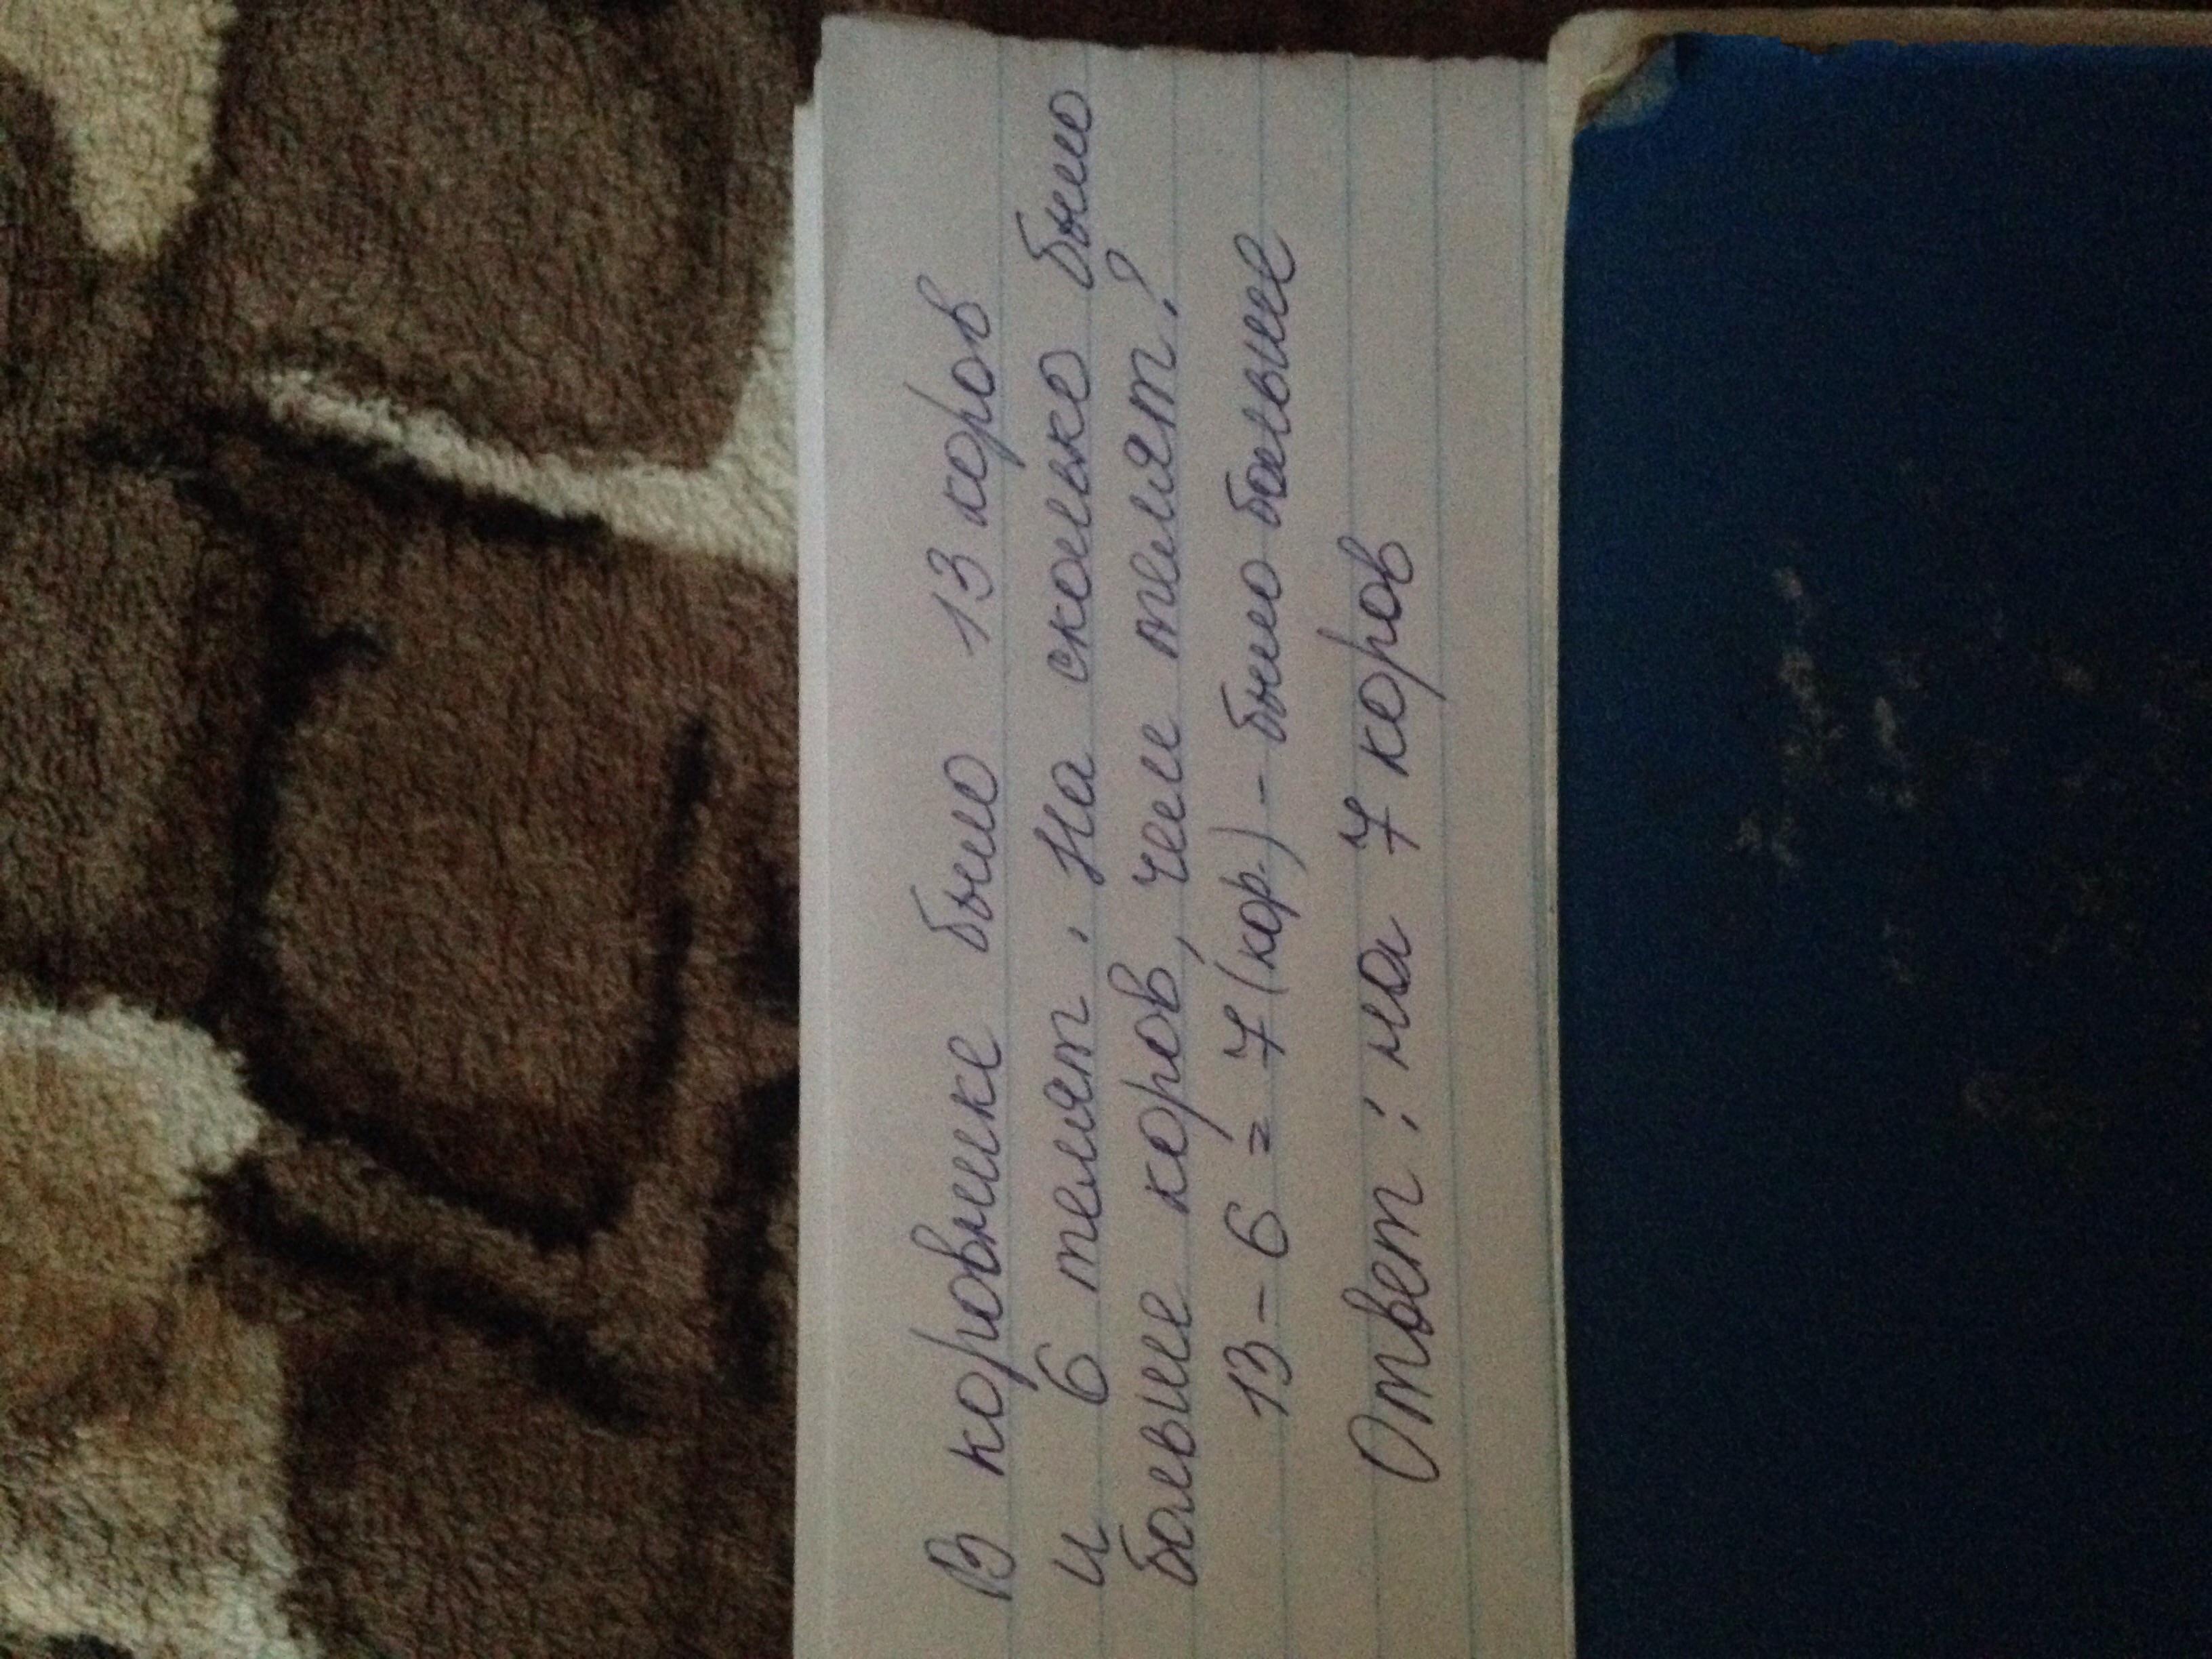 В коровнике было 13 коров
и 6 телят. На сколько было
больше коров, чем телят?
13 - 6 = 7 (кор.) - было больше
Ответ: на 7 коров